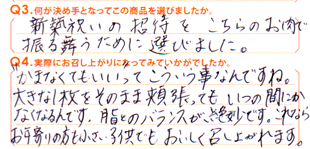 Q3.何が決め手となってこの商品を選びましたか。
新築祝いの招待を こちらのお肉で
振る舞うために選びました。
Q4.実際にお召し上がりになってみていかがでしたか。
かまなくてもいいって こういう事なんですね。
大きな1枚をそのまま頬張っても いつの間にか
なくなるんです。脂とのバランスが、絶妙です。これなら
お年寄りの方も小さい子供でも おいしく召し上がれます。